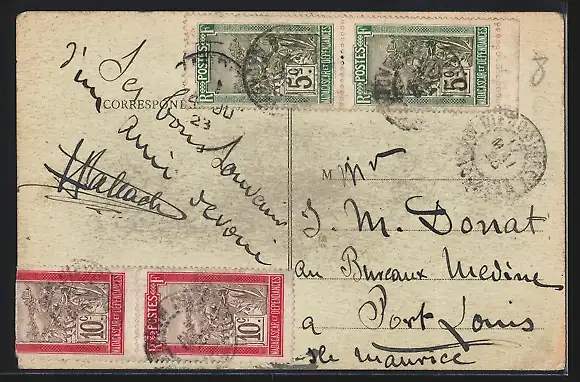 POSTES
RF
5c
MADAGASCAR ET DÉPENDANCES
POSTES
RF
5c
MADAGASCAR ET DÉPENDANCES
8
CORRESPON
23
Ses bons Souvenirs
d'un ami dévoué
M Mr
J. M. Donat
au Bureaux Medine
a Port Louis
Ile Maurice
10c
MADAGASCAR ET DÉPENDANCES
POSTES
RF
10c
MADAGASCAR ET DÉPENDANCES